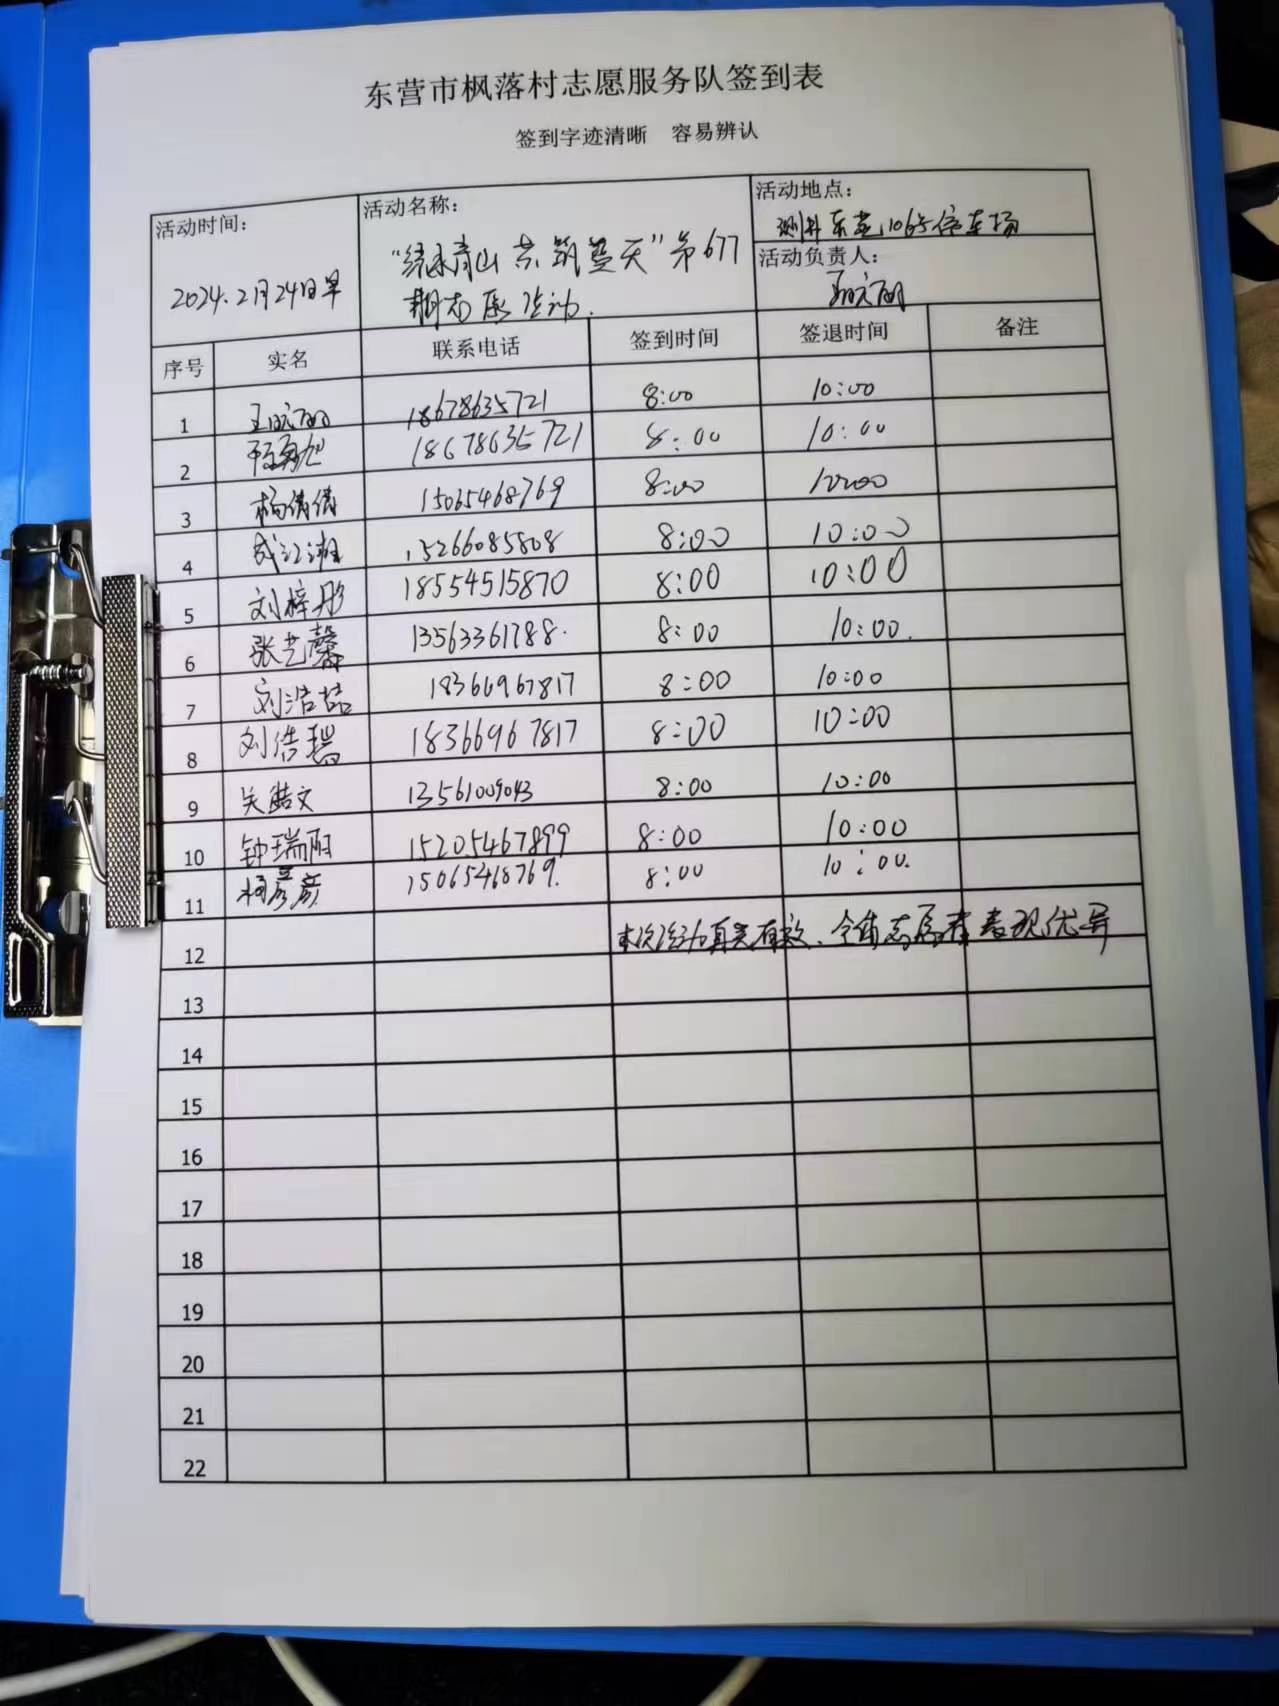 东营市枫落村志愿服务队签到表
签到字迹清晰 容易辨认
活动时间： 活动名称： 活动地点：
测井东 106号停车场
2024.2月24日早 “绿水青山 共筑蓝天”第677
期志愿活动. 活动负责人：
序号 实名 联系电话 签到时间 签退时间 备注
1 18678635721 8:00 10:00
2 18678635721 8:00 10:00
3 杨倩倩 15065468769 8:00 10:00
4 15266085808 8:00 10:00
5 刘梓彤 18554515870 8:00 10:00
6 张艺馨 13563361788. 8:00 10:00.
7 刘浩 18366967817 8:00 10:00
8 刘浩 18366967817 8:00 10:00
9 文 13561009043 8:00 10:00
10 钟瑞阳 15205467899 8:00 10:00
11 杨彦 15065468769. 8:00 10:00.
12 本次活动真实有效、全体志愿者表现优异
13
14
15
16
17
18
19
20
21
22